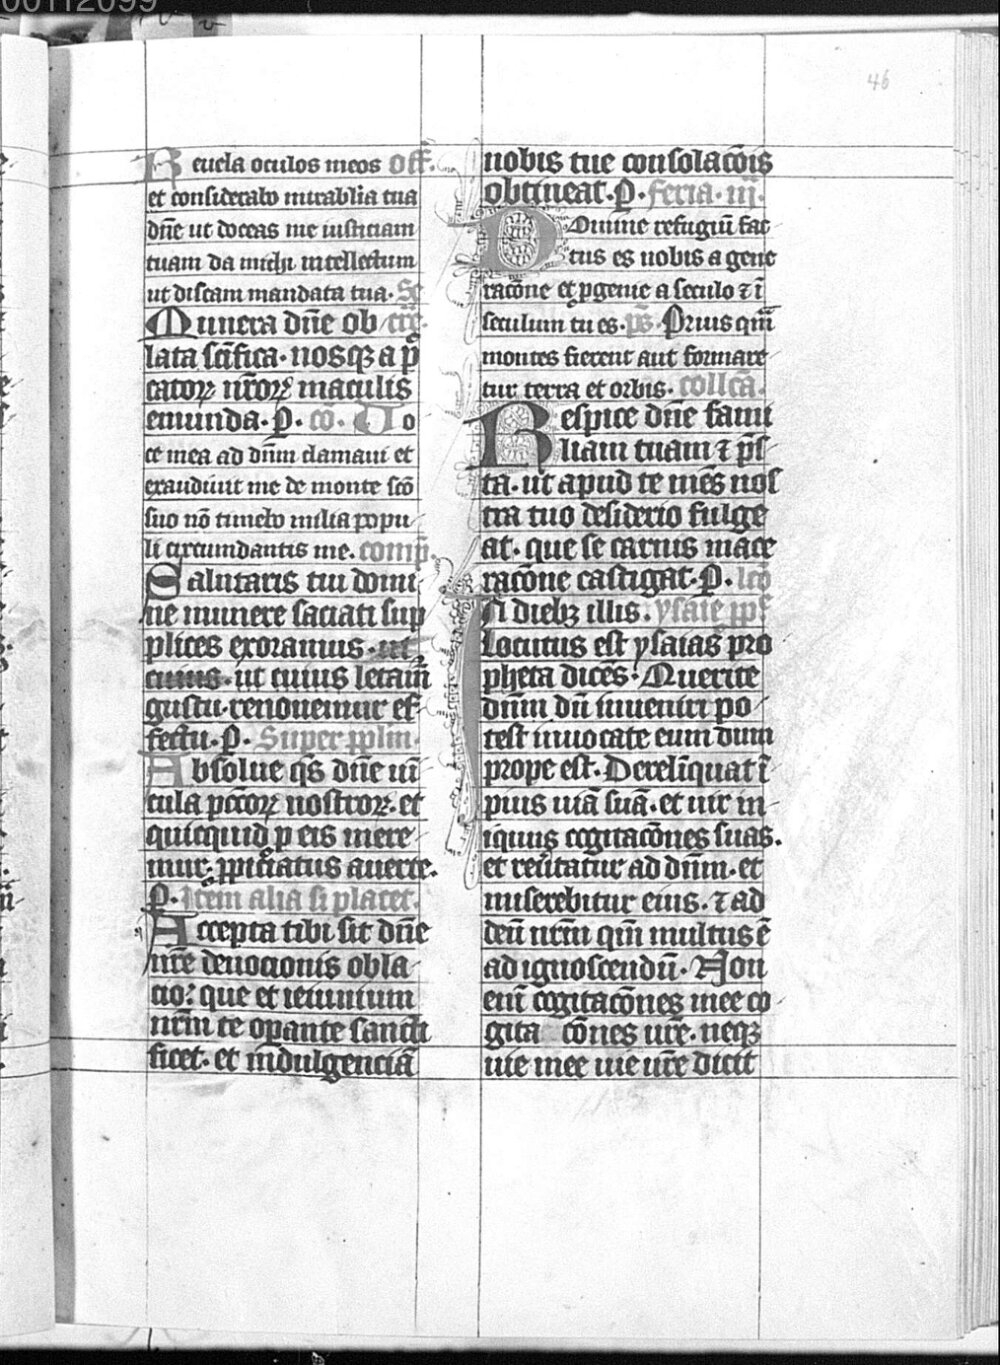 00112099
46
Reuela oculos meos off̄.
et considerabo mirabilia tua
dn̄e ut doceas me iusticiam
tuam da michi intellectum
ut discam mandata tua. Se
Munera dn̄e ob cre.
lata sc̄ifica. nosqꝫ a p̄
catoꝝ nr̄oꝝ maculis
emunda. P. co. Uo
ce mea ad dn̄m clamaui et
exaudiuit me de monte sc̄o
suo nō timebo milia popu
li circumdantis me. comp̄.
Salutaris tui domi
ne munere saciati sup
plices exoramus. ut
cuius. ut cuius letam̄
gustu. renouemur ef
fectu. P. Super ppl̄m.
Absolue qs̄ dn̄e ui̅
cula pcc̄oꝝ nostroꝝ. et
quicquid p eis mere
mur. ꝓpiciatus auerte.
P. Item alia si placet.
Accepta tibi sit dn̄e
nr̄e deuocionis obla
cio: que et ieiunium
nr̄m te opante sancti
ficet. et indulgenciā
nobis tue consolacōis
obtineat. P. feria. iij.
Domine refugiū fac
tus es nobis a gene
racōne et pgenie a seculo ⁊ ī
seculum tu es. ps̄. Prius qm̄
montes fierent aut formare
tur terra et orbis. collc̄a.
Respice dn̄e fami
liam tuam ⁊ p̄s
ta. ut apud te mēs nos
tra tuo desiderio fulge
at. que se carnis mace
racōne castigat. P. lc̄o
In diebꝫ illis. ysaie ꝓph̄e
Locutus est ysaias pro
pheta dicēs. Querite
dn̄m dū inueniri po
test inuocate eum dum
prope est. Derelīquat ī
pius uiā suā. et uir in
iquus cogitacōnes suas.
et reūtatur ad dn̄m. et
miserebitur eius. ⁊ ad
deū nr̄m qm̄ multus ē
ad ignoscendū. Non
enī cogitacōnes mee co
gita cōnes ur̄e. neqꝫ
uie mee uie ur̄e dicit